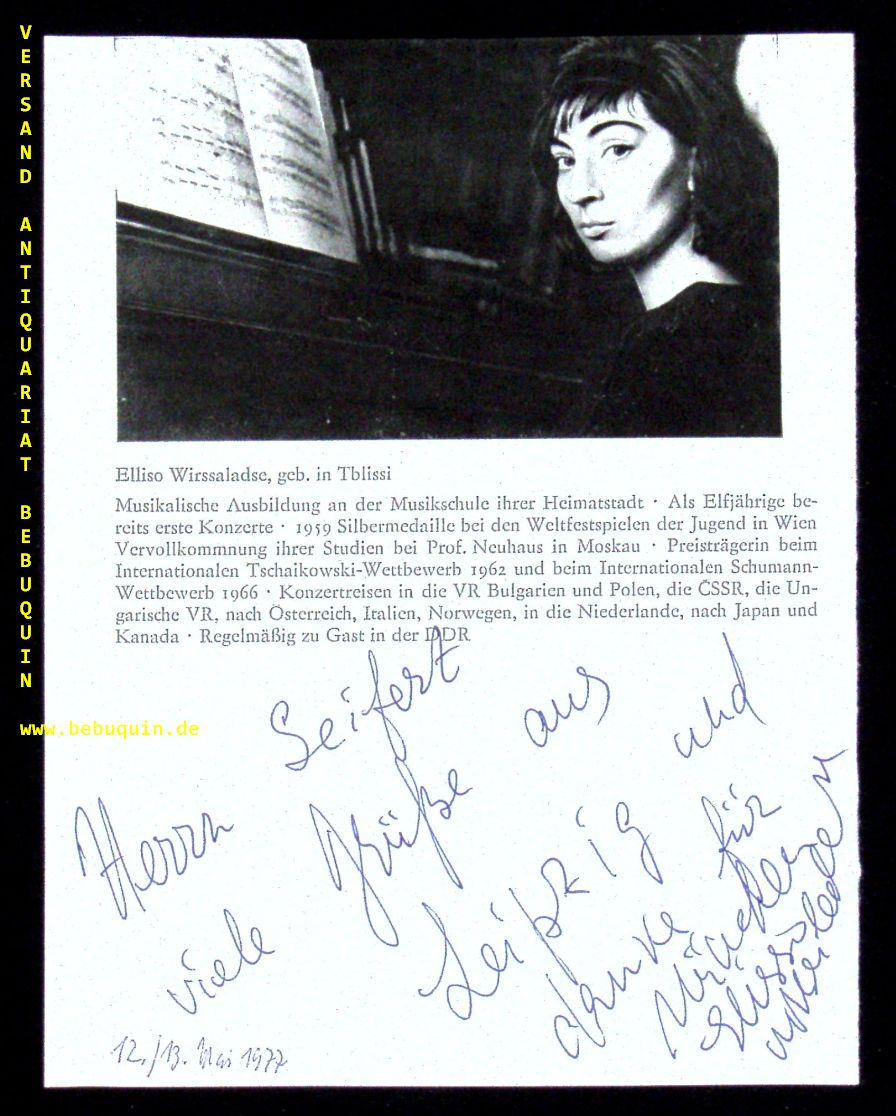 VERSAND ANTIQUARIAT BEBUQUIN
www.bebuquin.de
Elliso Wirssaladse, geb. in Tblissi
Musikalische Ausbildung an der Musikschule ihrer Heimatstadt · Als Elfjährige be-
reits erste Konzerte · 1959 Silbermedaille bei den Weltfestspielen der Jugend in Wien
Vervollkommnung ihrer Studien bei Prof. Neuhaus in Moskau · Preisträgerin beim
Internationalen Tschaikowski-Wettbewerb 1962 und beim Internationalen Schumann-
Wettbewerb 1966 · Konzertreisen in die VR Bulgarien und Polen, die ČSSR, die Un-
garische VR, nach Österreich, Italien, Norwegen, in die Niederlande, nach Japan und
Kanada · Regelmäßig zu Gast in der DDR
Herrn Seifert
viele Grüße aus
Leipzig und
danke für
12./13. Mai 1977